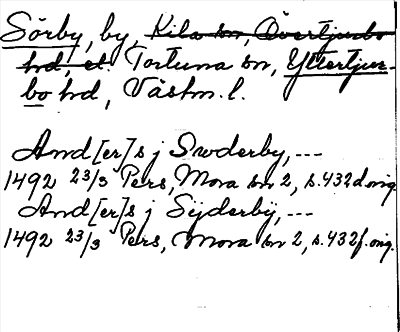 Sörby, by, Kila sn, Övertjurbo
hd, et. Tortuna sn, Yttertjur-
bo hd, Västm. l.
And[er]s j Swderby, ---
1492 23/3 Pers, Mora sn 2, s. 432 d orig.
And[er]s j Sÿderbÿ, ---
1492 23/3 Pers, Mora sn 2, s. 432 f. orig.